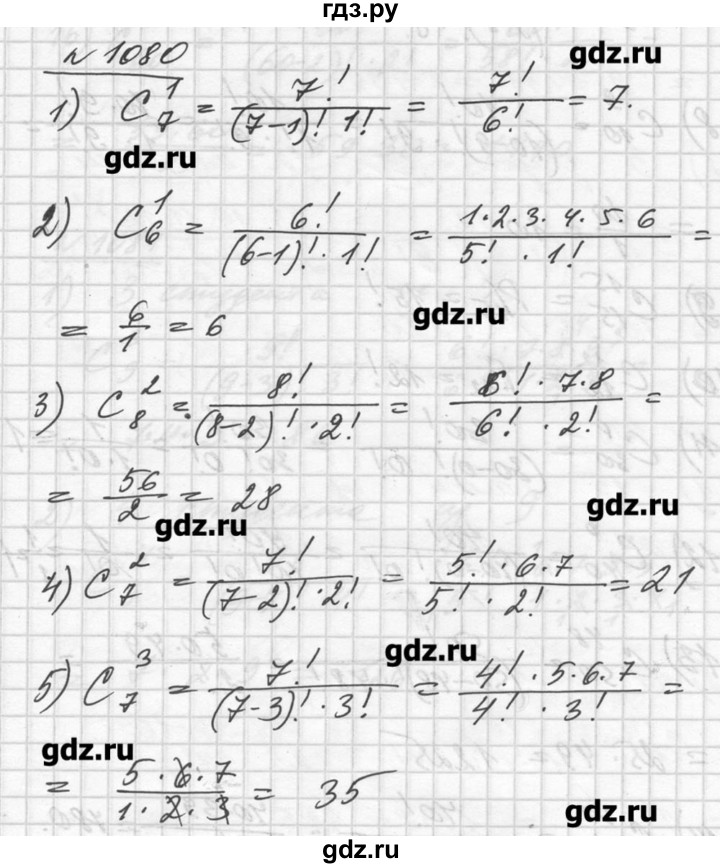 гдз.ру
№ 1080
gdz.ru
1) C₇¹ = 7!/((7-1)! 1!) = 7!/6! = 7.
gdz.ru
2) C₆¹ = 6!/((6-1)!·1!) = (1·2·3·4·5·6)/(5!·1!) =
gdz.ru
= 6/1 = 6
3) C₈² = 8!/((8-2)!·2!) = (6!·7·8)/(6!·2!) =
= 56/2 = 28
gdz.ru
gdz.ru
4) C₇² = 7!/((7-2)!·2!) = (5!·6·7)/(5!·2!) = 21
gdz.ru
5) C₇³ = 7!/((7-3)!·3!) = (4!·5·6·7)/(4!·3!) =
gdz.ru
= (5·6·7)/(1·2·3) = 35
gdz.ru
gdz.ru